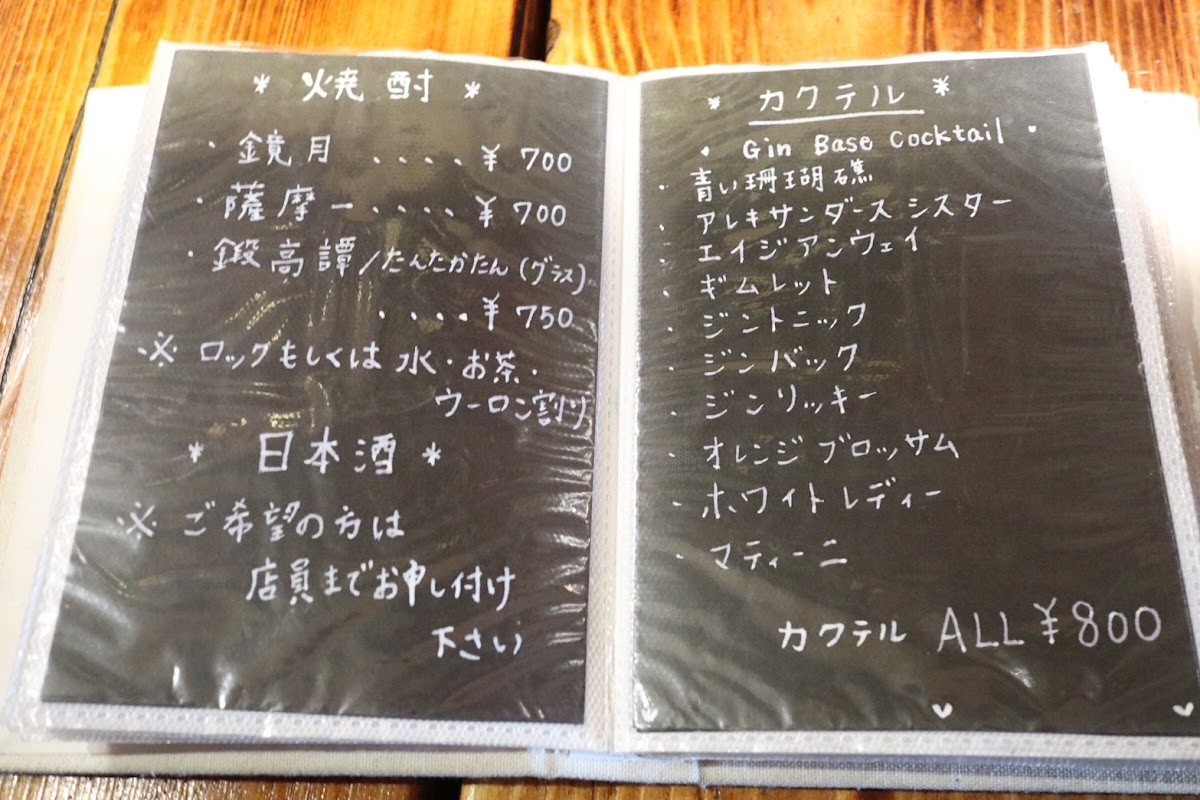 * 焼酎 *
・鏡月 ....¥700
・薩摩一 ....¥700
・鍛高譚/たんたかたん(グラス)
....¥750
※ ロックもしくは 水・お茶・
ウーロン割り
* 日本酒 *
※ ご希望の方は
店員までお申し付け
下さい
* カクテル *
・ Gin Base Cocktail ・
・青い珊瑚礁
・アレキサンダースシスター
・エイジアンウェイ
・ギムレット
・ジントニック
・ジンバック
・ジンリッキー
・オレンジブロッサム
・ホワイトレディー
・マティーニ
カクテル ALL¥800